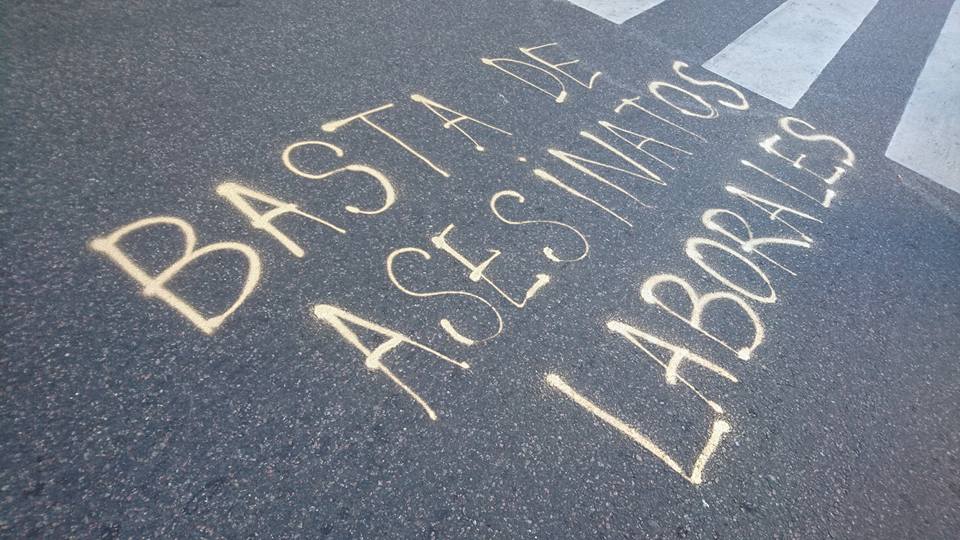 BASTA DE
ASESINATOS
LABORALES